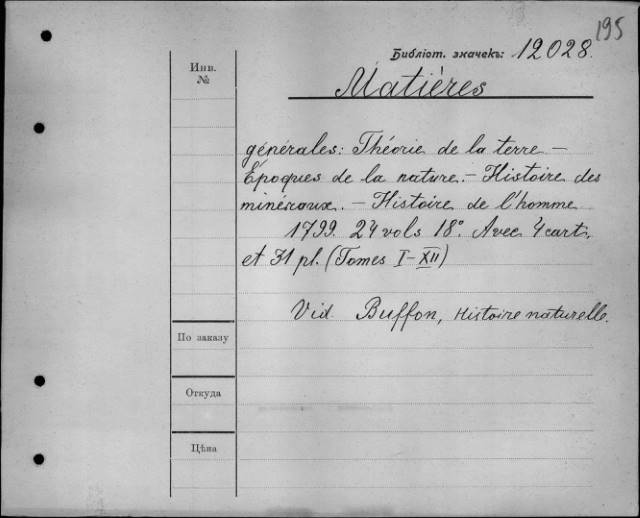 195
Библіот. значекъ: 12028.
Инв.
№
Matières
générales: Théorie de la terre —
Époques de la nature. — Histoire des
minéraux. — Histoire de l'homme
1799. 24 vols 18°. Avec 4 cart.
et 31 pl. (Tomes I-XII)
Vid. Buffon, Histoire naturelle.
По заказу
Откуда
Цѣна